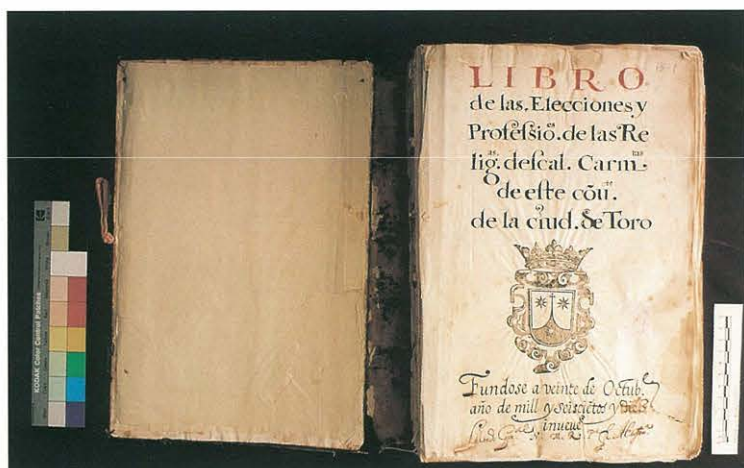 KODAK Color Control Patches
LIBRO
de las. Elecciones y
Profeſsio.ᵉˢ de las Re
lig.ᵃˢ deſcal. Carm.ᵗᵃˢ
de eſte cõu.ᵗᵒ
de la ciud. de Toro
Fundose a veinte de Octub.ᵉ
año de mill y seiscietos y diez
inueue